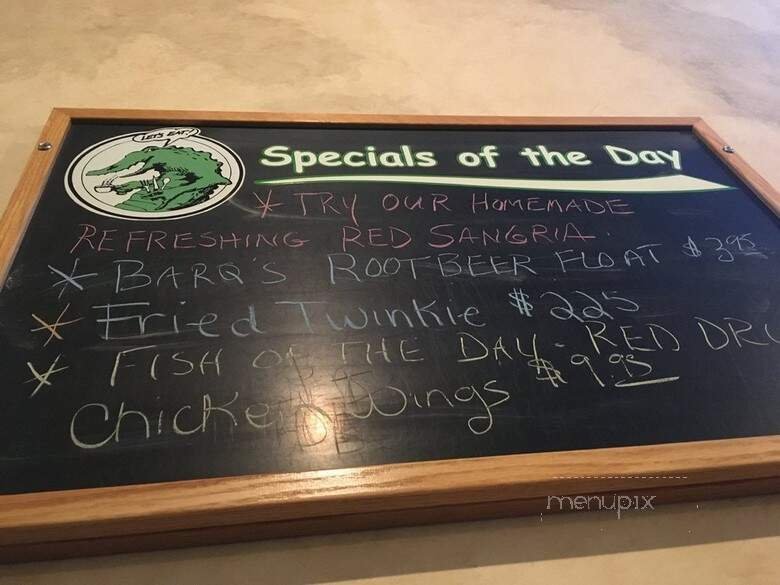 LET'S EAT!
Specials of the Day
* TRY OUR HOMEMADE
REFRESHING RED SANGRIA.
* BARQ'S ROOTBEER FLOAT $3.95
* Fried Twinkie $2.25
* FISH OF THE DAY - RED DRU
$9.95
Chicken Wings
menupix